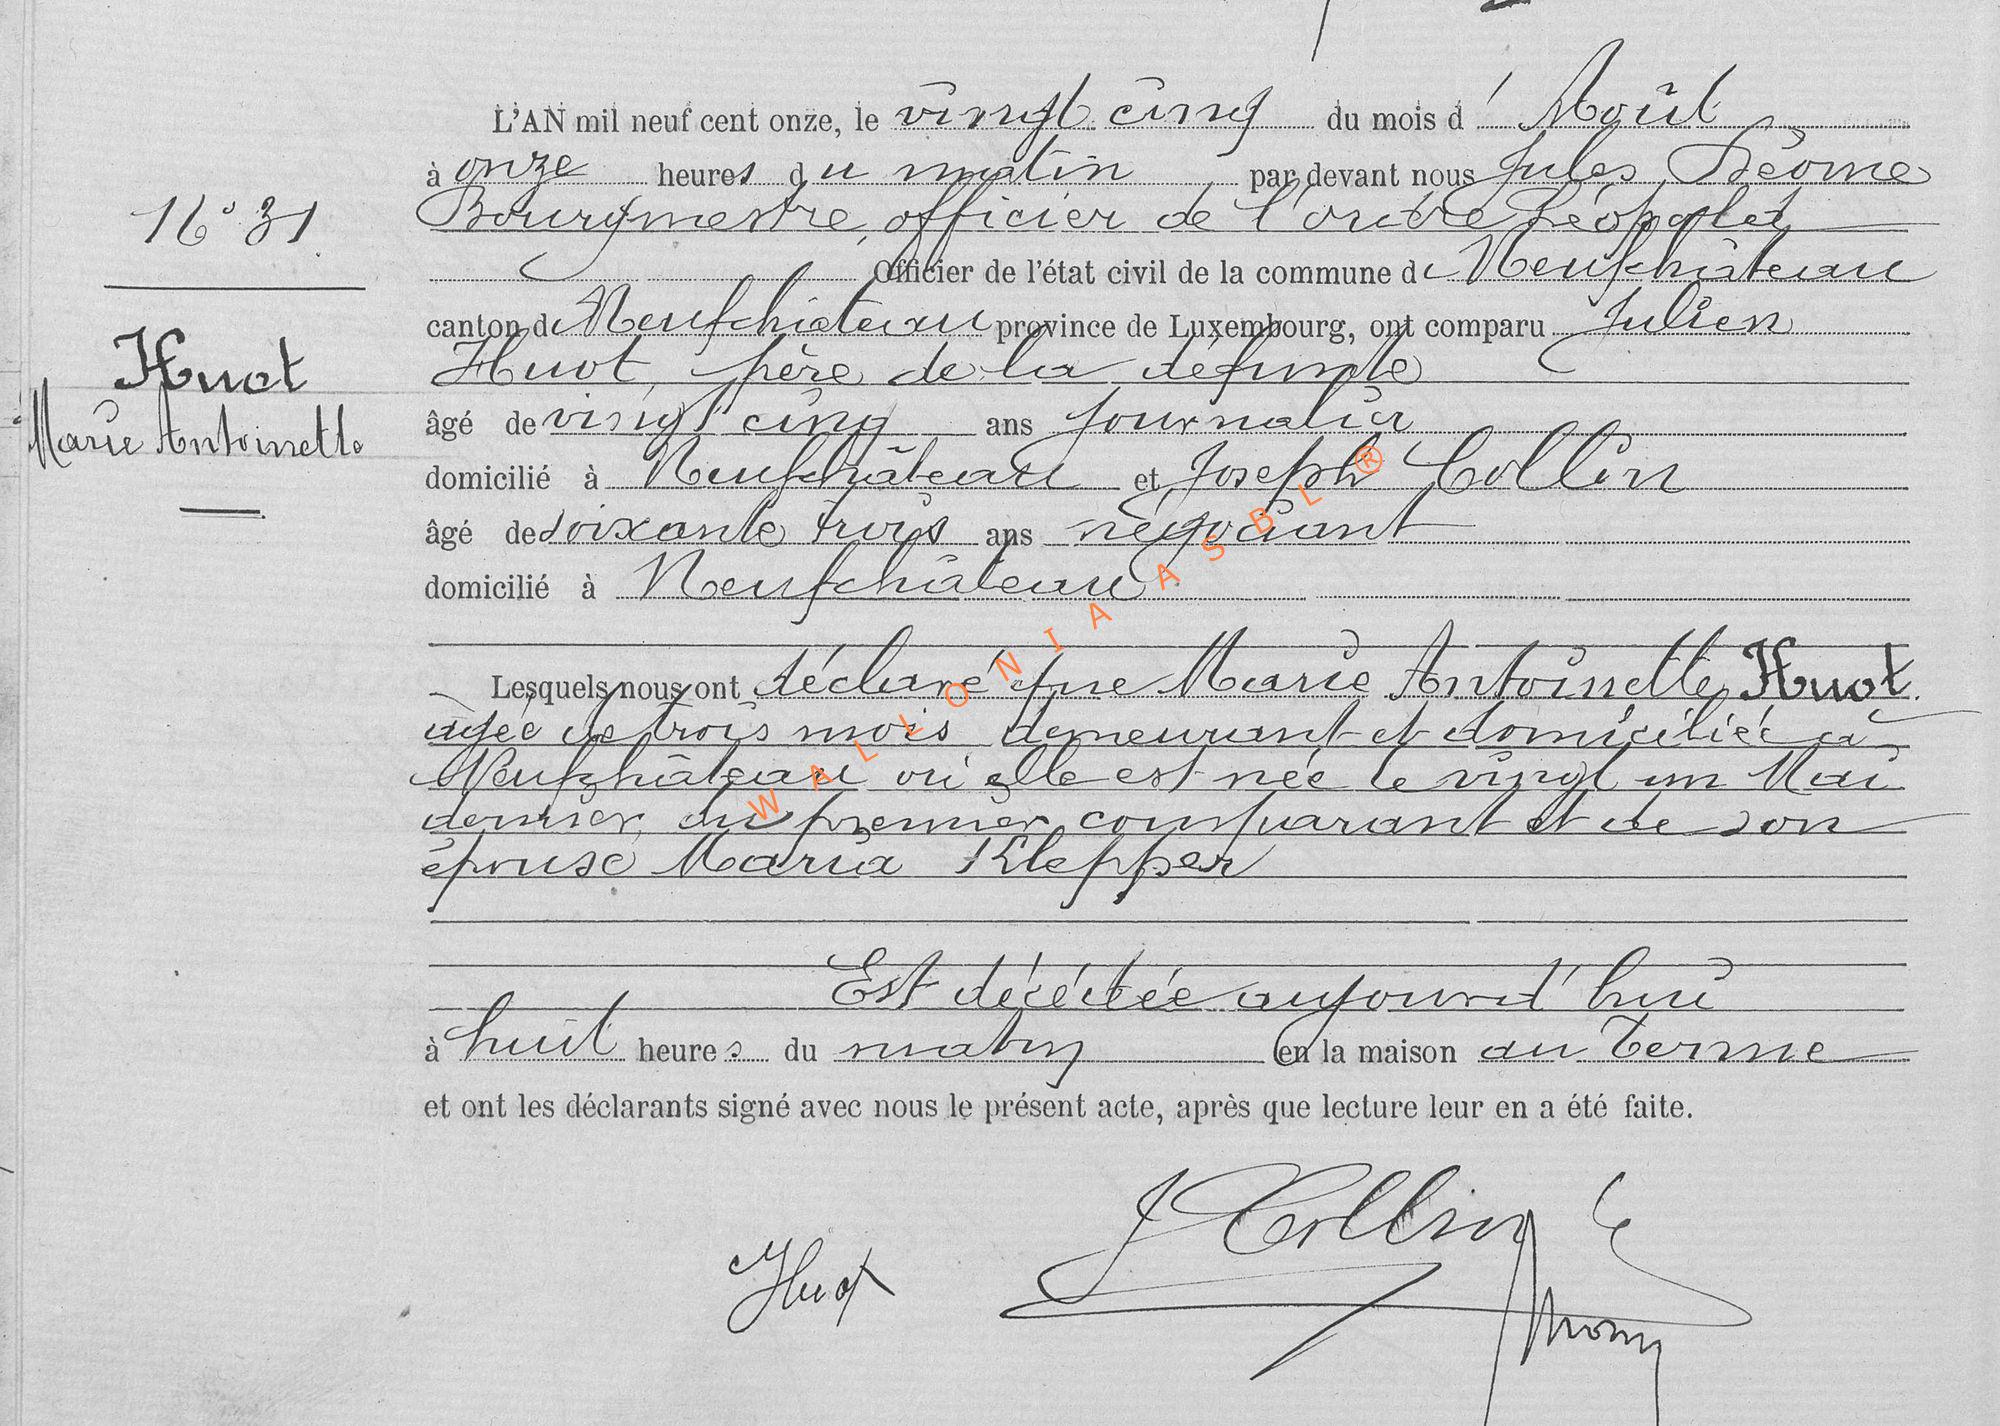 L'AN mil neuf cent onze, le vingt cinq du mois d'Août
à onze heures du matin par devant nous Jules
Bourgmestre, officier de l'ordre Léopold
Officier de l'état civil de la commune de Neufchâteau
N° 31
canton de Neufchâteau province de Luxembourg, ont comparu Julien
Huot, père de la défunte
Huot
Marie Antoinette
âgé de vingt cinq ans journalier
domicilié à Neufchâteau et Joseph Collin
âgé de soixante trois ans négociant
domicilié à Neufchâteau
Lesquels nous ont déclaré que Marie Antoinette Huot.
âgée de trois mois, demeurant et domiciliée à
Neufchâteau où elle est née le vingt un Mai
dernier, du premier comparant et de son
épouse Maria Klepper
Est décédée aujourd'hui
à huit heures du matin en la maison au Terme
et ont les déclarants signé avec nous le présent acte, après que lecture leur en a été faite.
J Collin
Huot
WALLONIA ASBL®